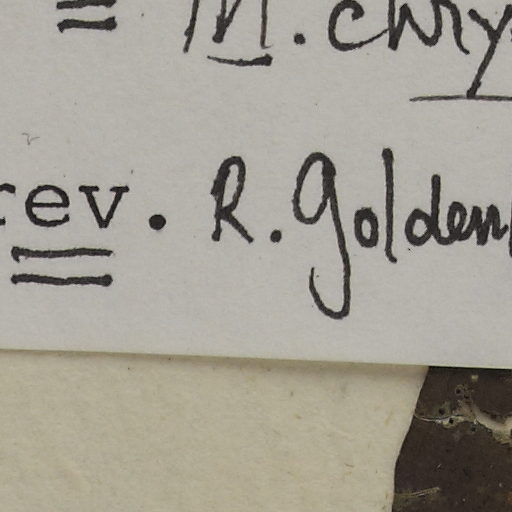 M. chry
rev. R. Golden